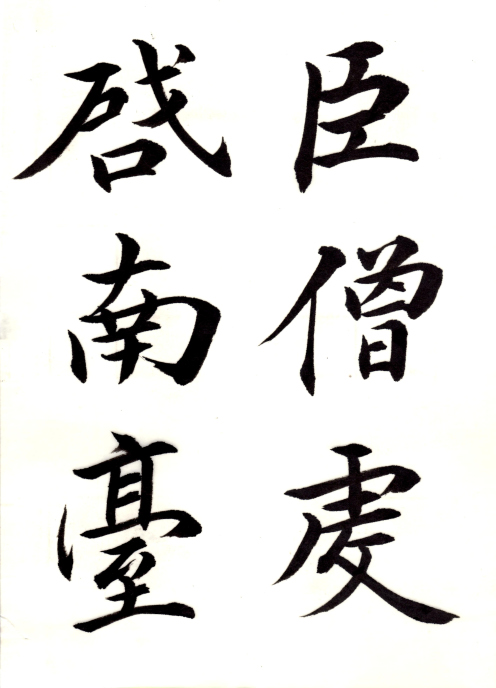 臣僧虔
啓南臺